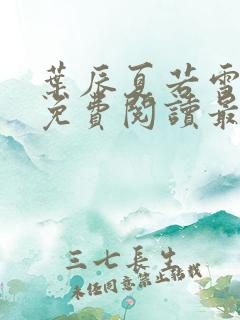 葉辰夏若雪
免費閱讀最
三七長生
未經同意禁止轉載